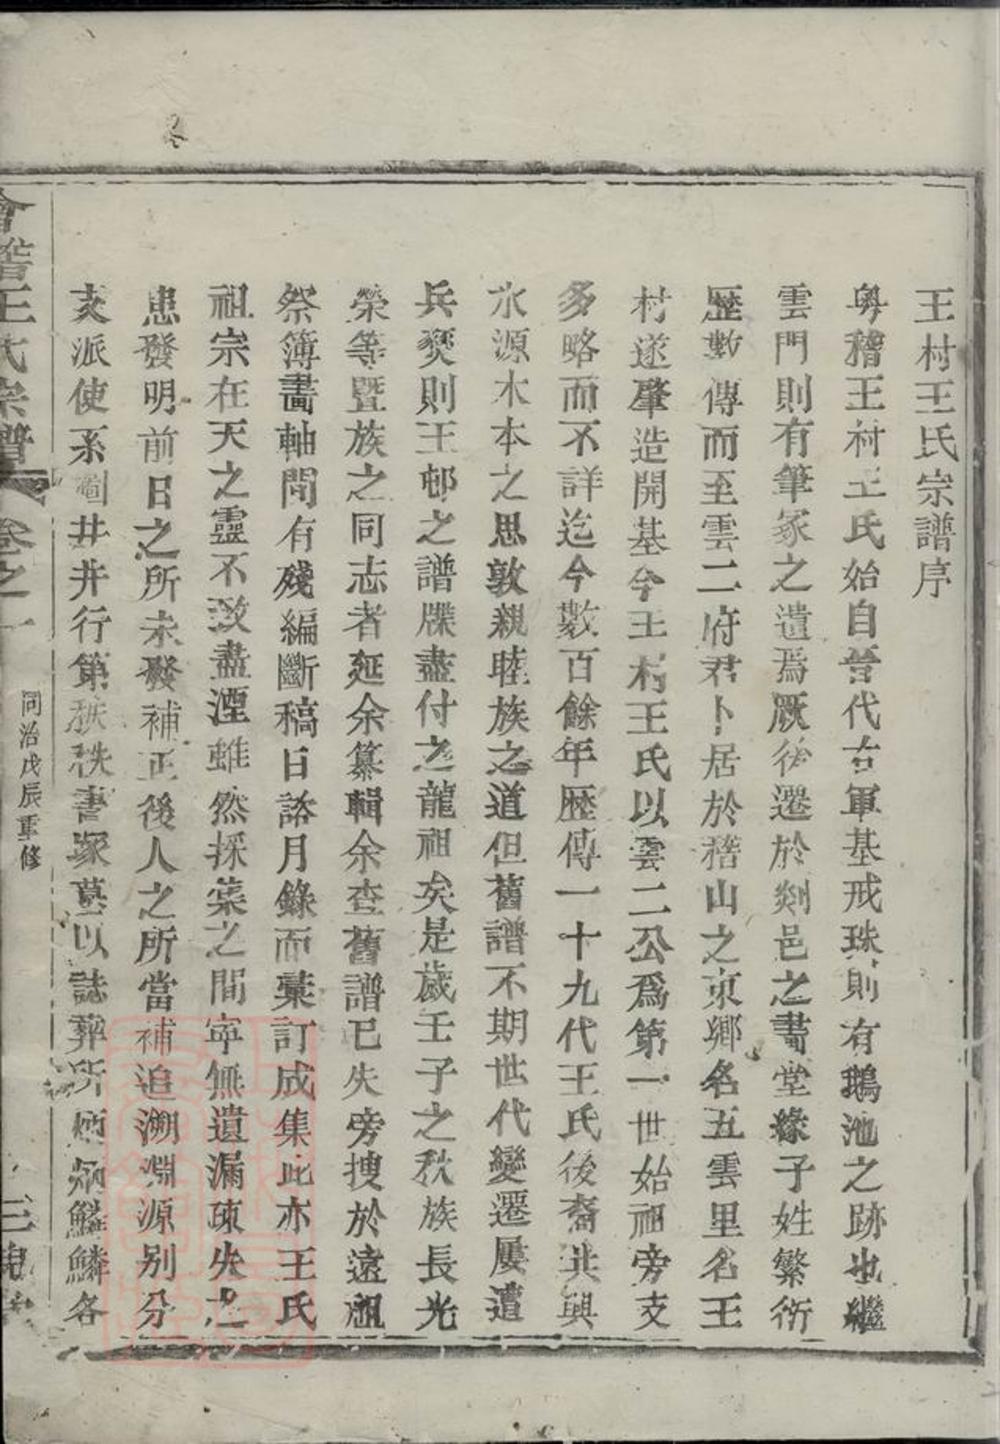 王村王氏宗譜序
粤稽王村王氏始自晉代右軍基戒珠則有鵝池之跡也繼
雲門則有筆冢之遺焉厥後遷於剡邑之書堂緣子姓繁衍
歷數傳而至雲二府君卜居於稽山之東鄉名五雲里名王
村遂肇造開基今王村王氏以雲二公爲第一世始祖旁支
多略而不詳迄今數百餘年歷傳一十九代王氏後裔共興
水源木本之思敦親睦族之道但舊譜不期世代變遷屢遭
兵燹則王邨之譜牒盡付之龍祖矣是歲壬子之秋族長光
榮等暨族之同志者延余纂輯余查舊譜已失旁搜於遠祖
祭簿畫軸間有殘編斷稿日諮月錄而彙訂成集此亦王氏
祖宗在天之靈不致盡湮雖然採葉之間寧無遺漏疎失之
患發明前日之所未發補正後人之所當補追溯淵源别分
支派使系圖井井行第秩秩書塚墓以誌葬所炳炳鱗鱗各
會稽王氏宗譜 卷之一 同治戊辰重修 三槐堂